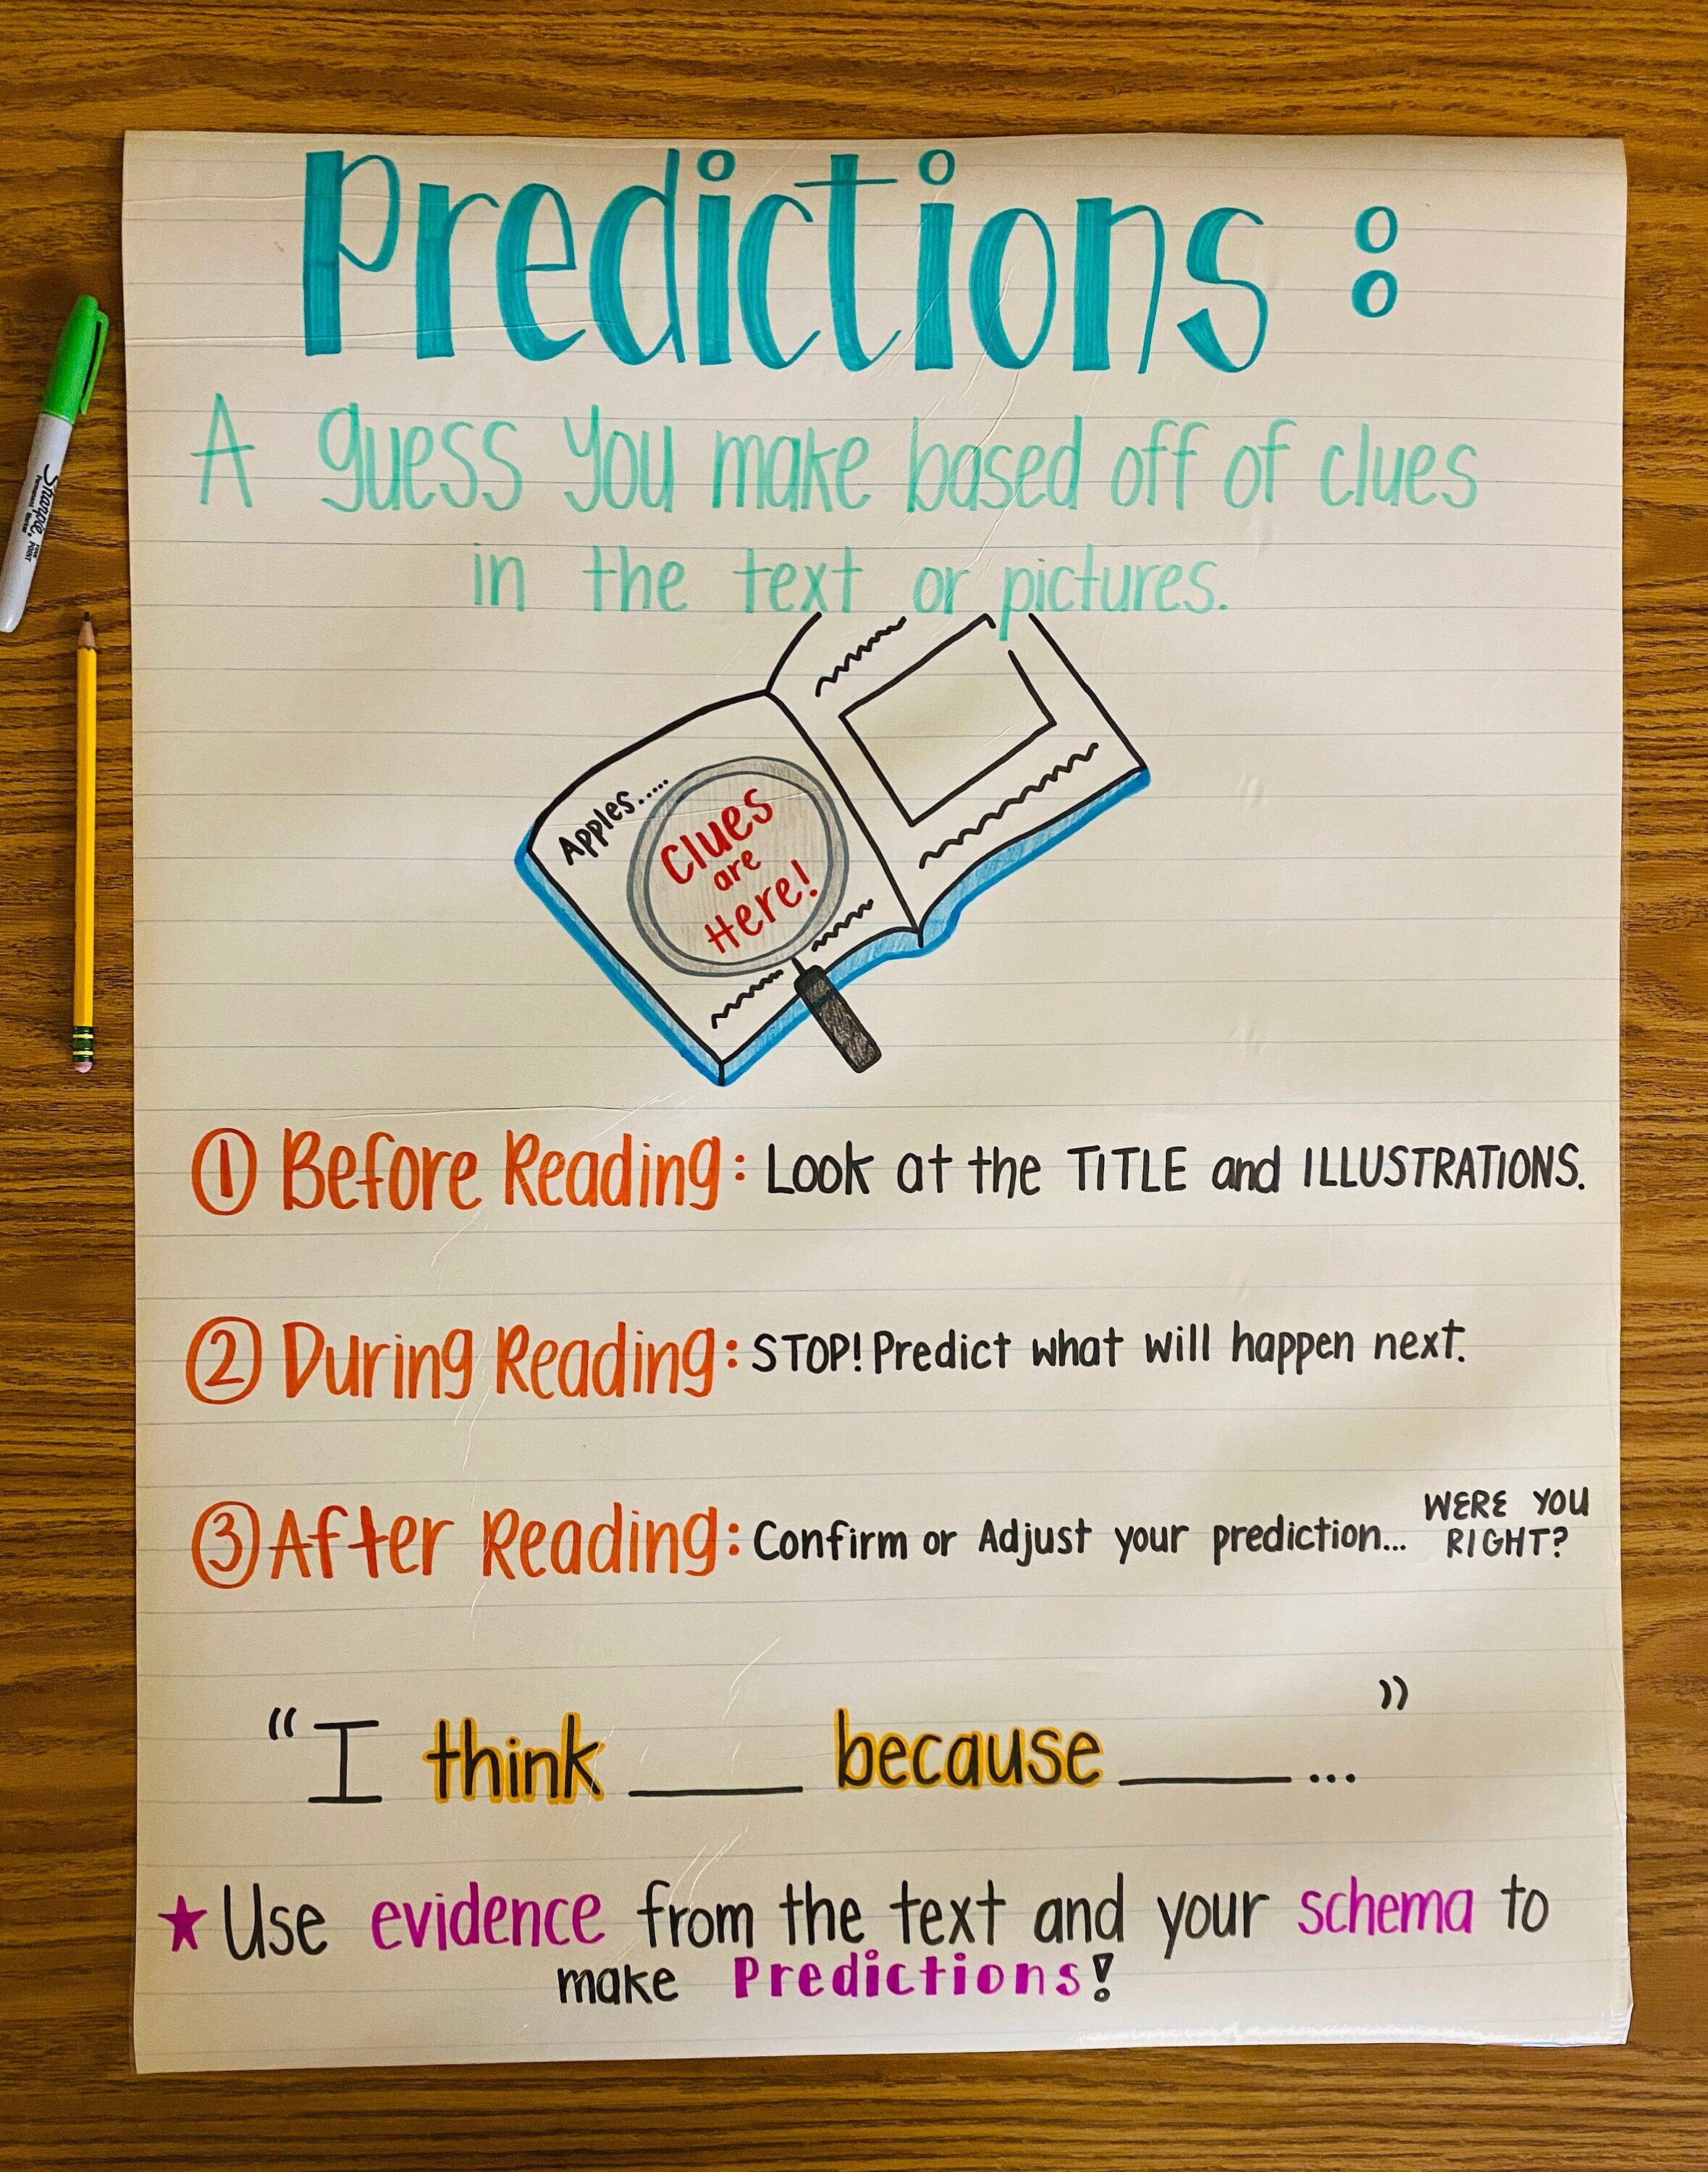 Predictions:
A guess you make based off of clues
in the text or pictures.
Apples.....
Clues
are
Here!
① Before Reading: Look at the TITLE and ILLUSTRATIONS.
② During Reading: STOP! Predict what will happen next.
③ After Reading: Confirm or Adjust your prediction... WERE YOU
RIGHT?
"I think ____ because ____..."
★ Use evidence from the text and your schema to
make Predictions!
Sharpie
Permanent Marker
FINE POINT